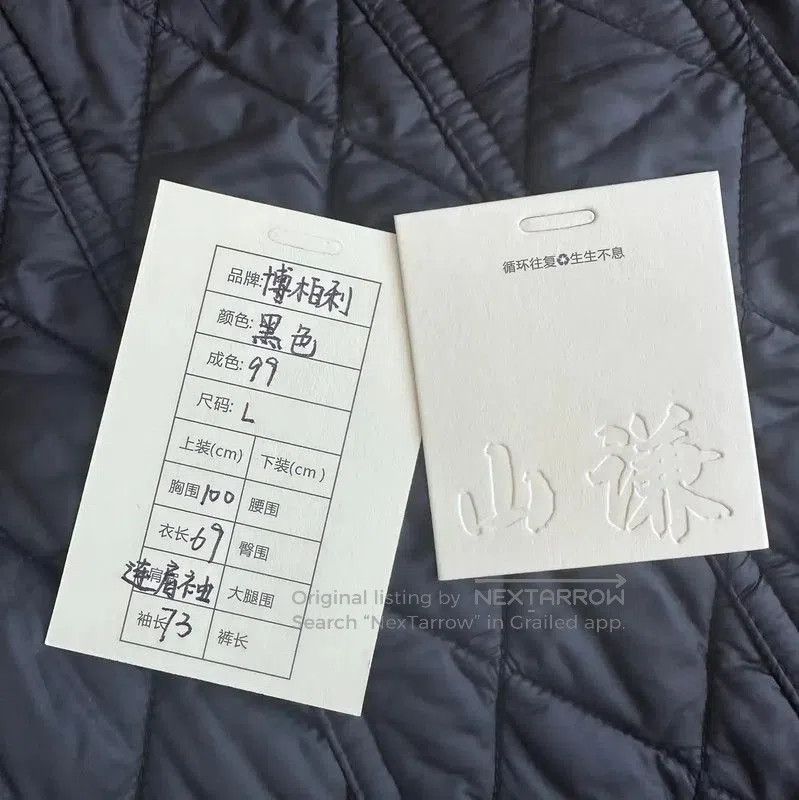 品牌:博柏利
颜色:黑色
成色:99
尺码:L
上装(cm) 下装(cm)
胸围100 腰围
衣长69 臀围
肩 连肩袖 大腿围
袖长73 裤长
循环往复♻生生不息
山谦
Original listing by NEXTARROW
Search “NexTarrow” in Grailed app.